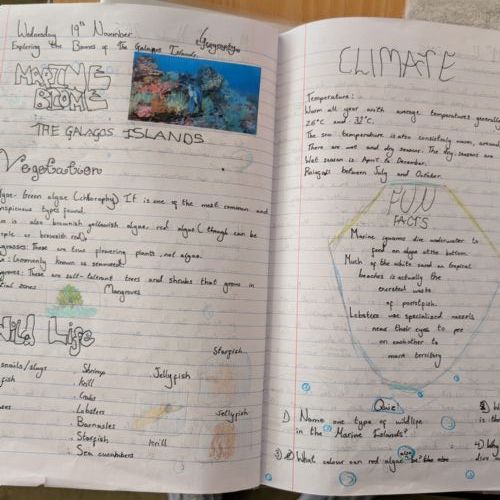 Wednesday 19th November
Geography
Exploring the Biomes of the Galagos Islands.
MARINE
BIOME
THE GALAGOS ISLANDS
Vegetation
Green algae (chlorophy) It is one of the most common and
types found.
is also brownish yellowish algae. red algae (though can be
or brownish red)
These are true flowering plants, not algae.
Commonly known as seaweed.
These are salt-tolerant trees and shrubs that grows in
zones
Mangroves
Wild Life
Starfish
snails/slugs
Shrimp
Jellyfish
fish
Krill
Crabs
Lobsters
Jellyfish
Barnacles
Starfish
Krill
Sea cucumbers
CLIMATE
Temperature:
Warm all year with average temperatures generally
26°C and 32°C.
The sea temperature is also consistently warm, around
There are wet and dry seasons. The dry seasons are
Wet season is April to December.
between July and October.
FUN
FACTS
Marine iguanas dive underwater to
feed on algae at the bottom.
Much of the white sand on tropical
beaches is actually the
excreted waste
of parrotfish.
Lobsters use specialized nozzels
near their eyes to pee
on eachother to
mark territory
Quiz
1) Name one type of wildlife
in the Marine Islands?
is the
3) What colour can red algae also be?
4) Why
dive